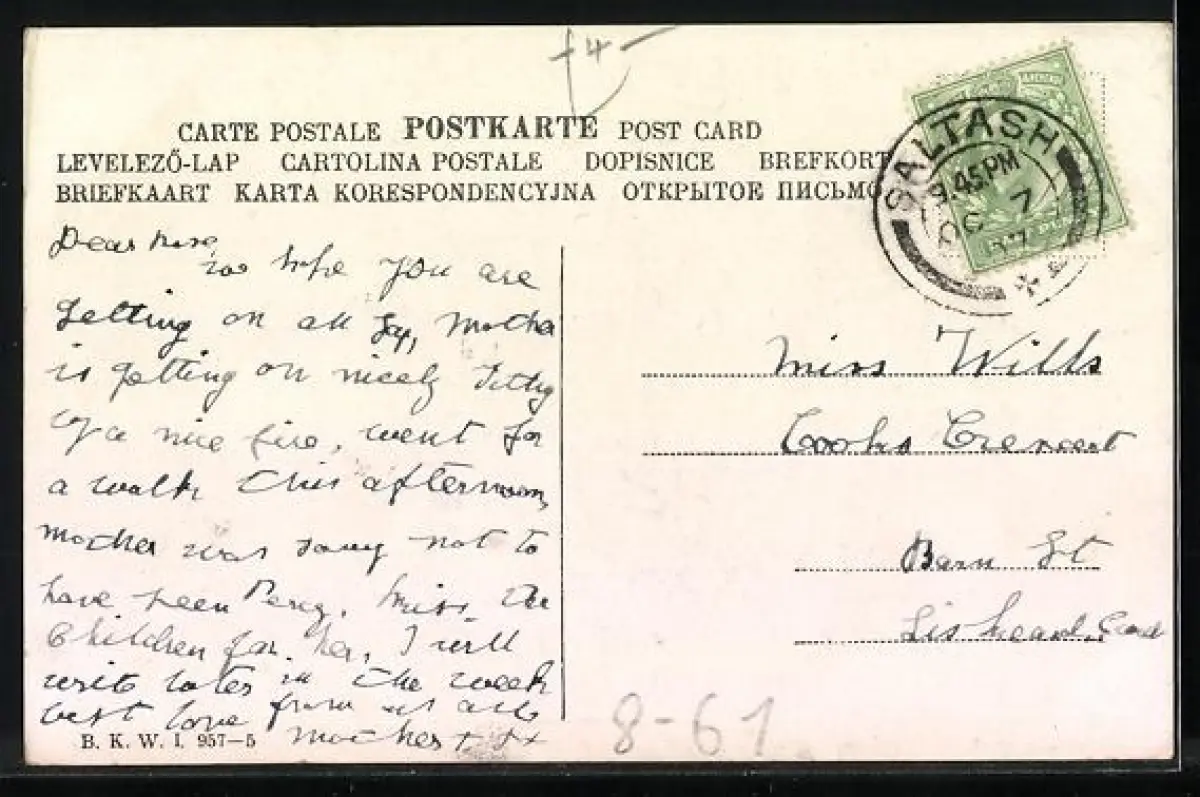 -4-
CARTE POSTALE POSTKARTE POST CARD
LEVELEZŐ-LAP CARTOLINA POSTALE DOPISNICE BREFKORT
BRIEFKAART KARTA KORESPONDENCYJNA ОТКРЫТОЕ ПИСЬМО
SALTASH
45 PM
OC 7
07
Dear
hope you are
getting on all Mother
is getting on nicely
a nice fire, went for
a walk this afternoon,
mother was sorry not to
have seen Percy. Miss the
Children for her, I will
write later in the week
best love from us all
mother + ++
B. K. W. I. 957-5
Miss Wills
Cooks Crescent
Barn St
Liskeard,
8-61